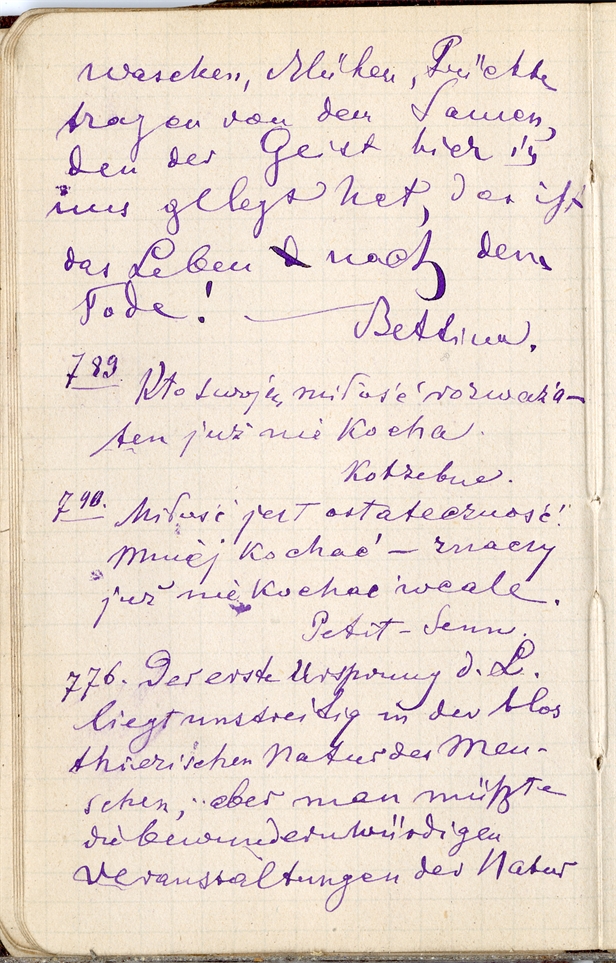 wascken, blühen, Früchte
tragen von den Samen,
den der Geist hier in
uns gelegt hat, das ist
das Leben nach dem
Tode! —
Bettina.
789
Kto swoją miłość rozważa—
ten już nie kocha.
Kotzebue.
790. Miłość jest ostateczność!
Mniej kochać — znaczy
już nie kochać wcale.
Petit-Senn.
776. Der erste Ursprung d. L.
liegt unstreitig in der blos
thierischen Natur des Men-
schen, aber man müßte
die bewundernwürdigen
Veranstaltungen der Natur